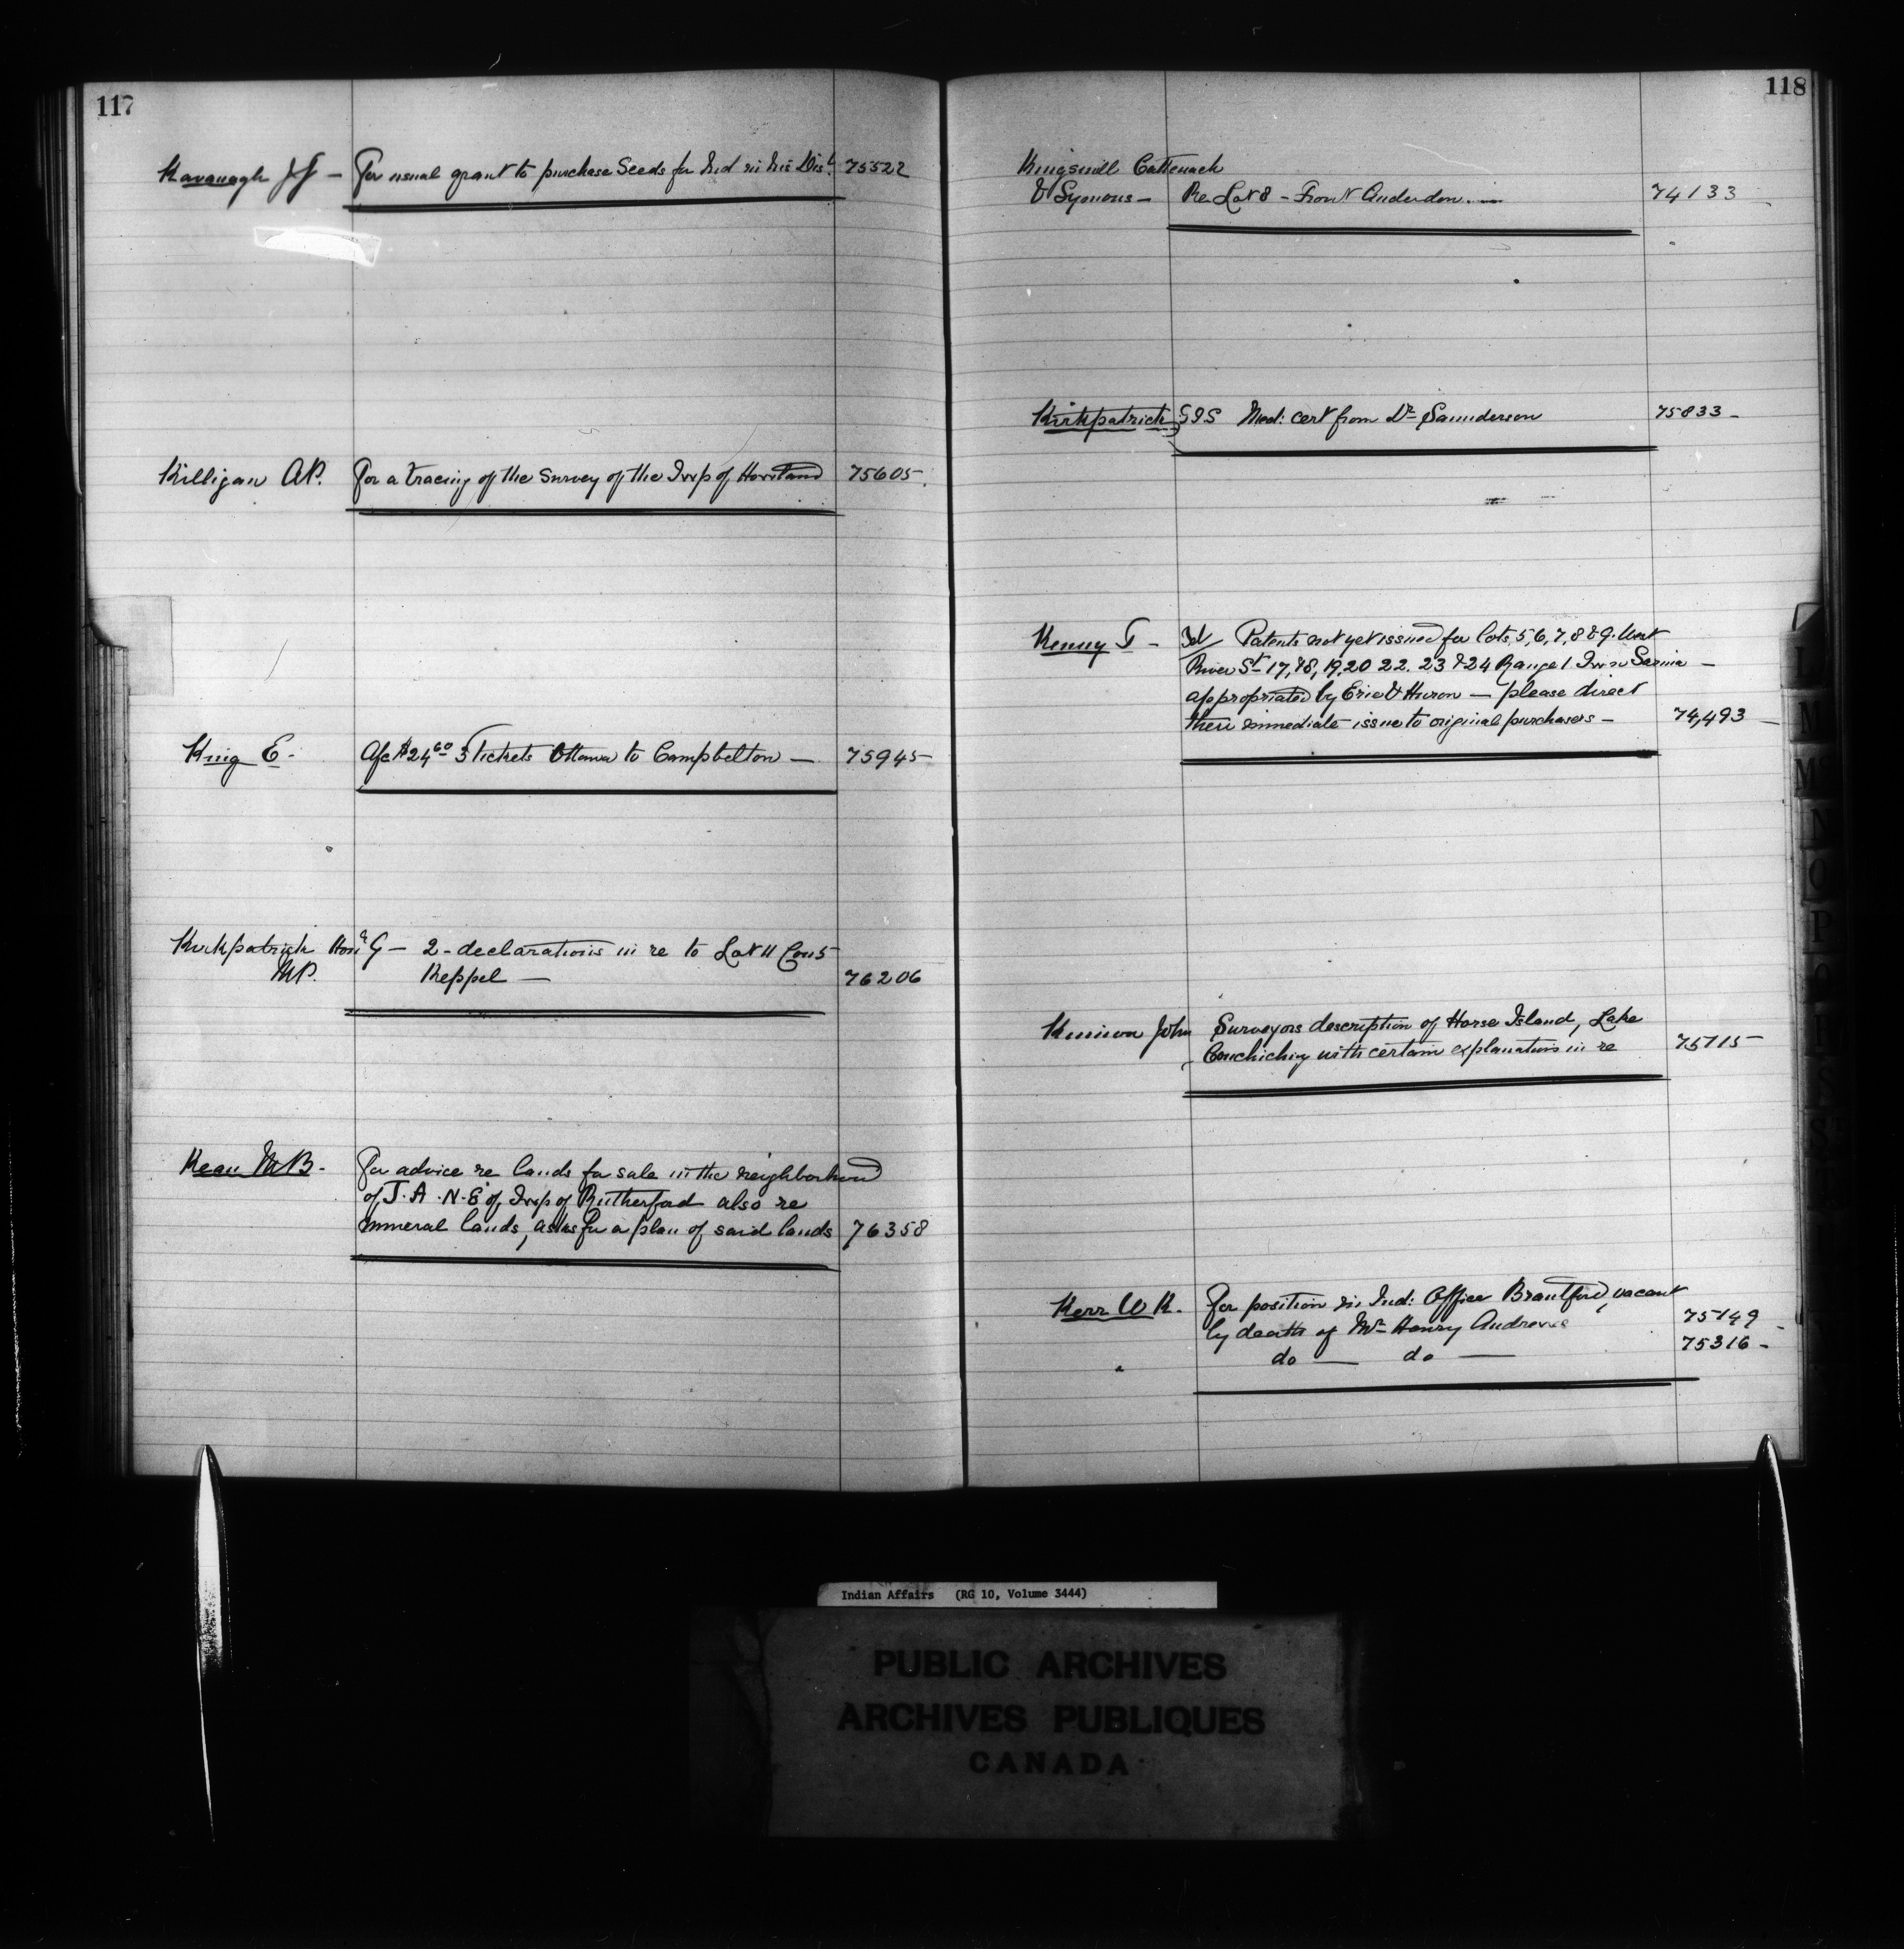 117
Kavanagh J J — For usual grant to purchase Seeds for Ind in his Dist. 75522
Killigan A.P. For a tracing of the Survey of the Twp of Howland 75605
King E. - A/c $24 60 3 Tickets Ottawa to Campbelton — 75945
Kirkpatrick Hon G — 2 - declarations in re to Lot 11 Con 5
M.P. Keppel — 76206
Kean M B. - For advice re lands for sale in the neighborhood
of J. A. N. E. of Twp of Rutherford also re
mineral lands, asks for a plan of said lands 76358
118
Kingsmill Cattenach
& Symons — Re Lot 8 - Front Anderdon. — 74133
Kirkpatrick G I S Med: cert from Dr Saunderson 75833 -
Kenny T - Tel/ Patents not yet issued for lots 5, 6, 7, 8 & 9. West
River St 17, 18, 19, 20 22. 23 & 24 Range 1 Twn Sarnia —
appropriated by Erie & Huron — please direct
their immediate issue to original purchasers — 74,493 —
John Surveyors description of Horse Island, Lake
Couchiching with certain explanations in re 75115
Kerr W K. For position in Ind: Office Brantford, vacant
by death of Mr Henry Andrews 75149
" do — do — 75316 -
L
M
M
N
O
P
Indian Affairs (RG 10, Volume 3444)
PUBLIC ARCHIVES
ARCHIVES PUBLIQUES
CANADA